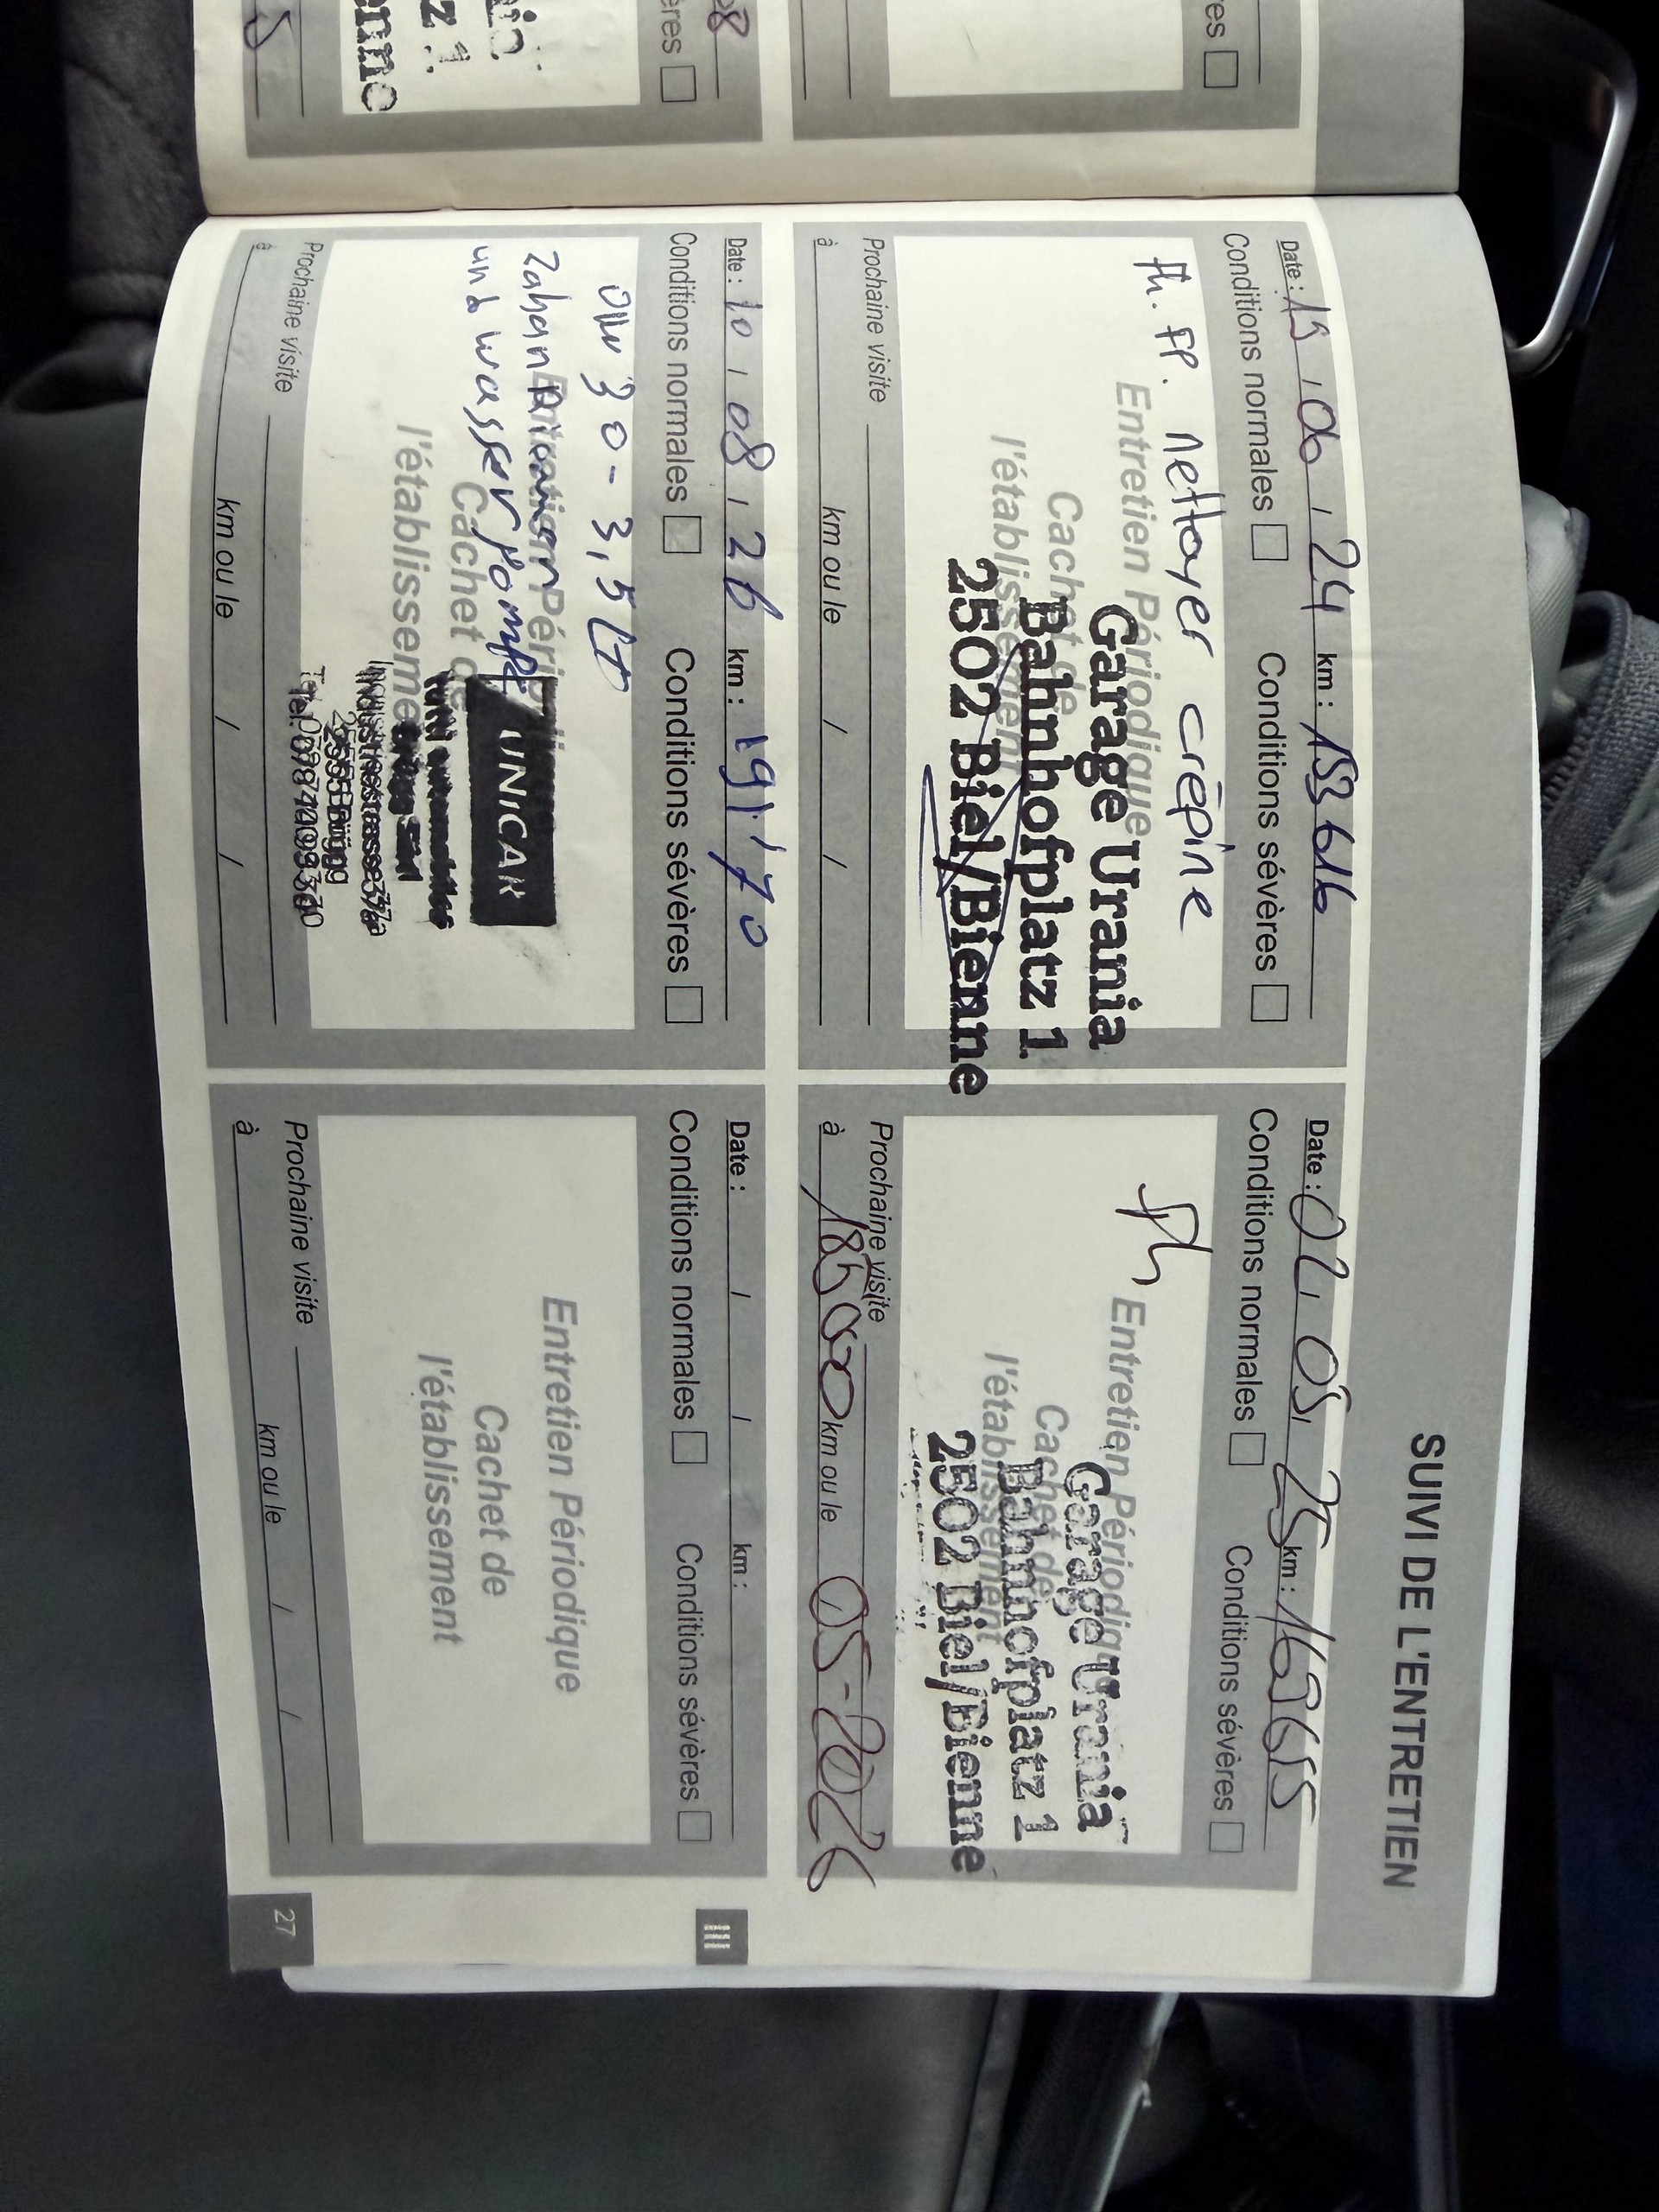 SUIVI DE L'ENTRETIEN
Date : 19 / 06 / 24 km : 153616
Conditions normales Conditions sévères
fh. fp. nettoyer crépine
Entretien Périodique
Cachet de
l'établissement
Garage Urania
Bahnhofplatz 1
2502 Biel/Bienne
Prochaine visite
à km ou le / /
Date : 02 / 05 / 25 km : 169655
Conditions normales Conditions sévères
fh
Entretien Périodique
Cachet de
l'établissement
Garage Urania
Bahnhofplatz 1
2502 Biel/Bienne
Prochaine visite
à 185000 km ou le 05-2026
Date : 10 / 08 / 26 km : 191170
Conditions normales Conditions sévères
0W30 - 3,5 Lt
und wasser pompe
Entretien Périodique
Cachet de
l'établissement
UNICAR
Industriestrasse 37a
2555 Brügg
Prochaine visite
à km ou le / /
Date : / / km :
Conditions normales Conditions sévères
Entretien Périodique
Cachet de
l'établissement
Prochaine visite
à km ou le / /
III
27